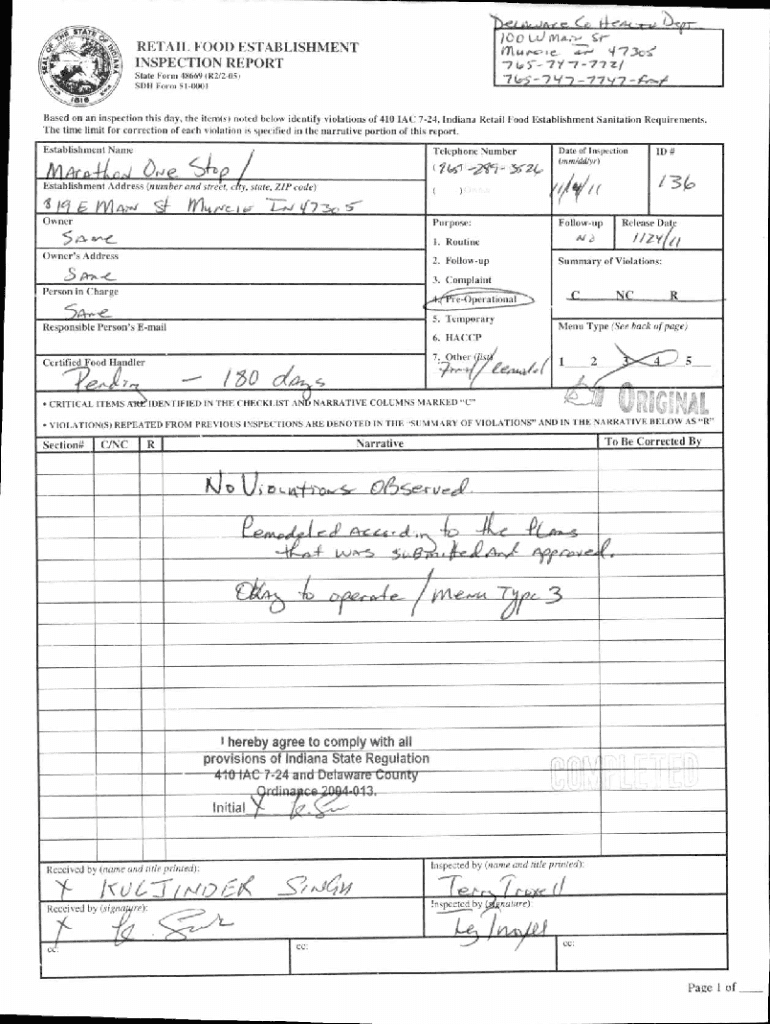 DELAWARE Co HEALTH DEPT
100 W MAIN ST
MUNCIE IN 47305
765-747-7721
765-747-7747-fax
RETAIL FOOD ESTABLISHMENT
INSPECTION REPORT
State Form 48669 (R2/2-05)
SDH Form 51-0001
SEAL OF THE STATE OF INDIANA
1816
Based on an inspection this day, the item(s) noted below identify violations of 410 IAC 7-24, Indiana Retail Food Establishment Sanitation Requirements.
The time limit for correction of each violation is specified in the narrative portion of this report.
Establishment Name
Marathon One Stop /
Telephone Number
(765) -289-3526
( )
Date of Inspection
(mm/dd/yr)
ID #
136
Establishment Address (number and street, city, state, ZIP code)
819 E MAIN St Muncie IN 47305
Owner
Same
Purpose:
Follow-up
No
Release Date
11/24/11
1. Routine
Owner's Address
Same
2. Follow-up
Summary of Violations:
3. Complaint
Person in Charge
Same
4. Pre-Operational
C NC R
5. Temporary
Responsible Person's E-mail
Menu Type (See back of page)
6. HACCP
Certified Food Handler
Pending - 180 days
7. Other (list)
1 2 3 4 5
• CRITICAL ITEMS ARE IDENTIFIED IN THE CHECKLIST AND NARRATIVE COLUMNS MARKED "C"
ORIGINAL
• VIOLATION(S) REPEATED FROM PREVIOUS INSPECTIONS ARE DENOTED IN THE "SUMMARY OF VIOLATIONS" AND IN THE NARRATIVE BELOW AS "R"
Section# C/NC R Narrative To Be Corrected By
No Violations Observed.
Remodeled According to the Plans
that was submitted and approved.
Okay to operate / Menu Type 3
I hereby agree to comply with all
provisions of Indiana State Regulation
410 IAC 7-24 and Delaware County
Ordinance 2004-013.
Initial X
COMPLETED
Received by (name and title printed):
X KULJINDER SINGH
Inspected by (name and title printed):
Terry Troxell
Received by (signature):
X
Inspected by (signature)
cc:
cc:
cc:
Page 1 of